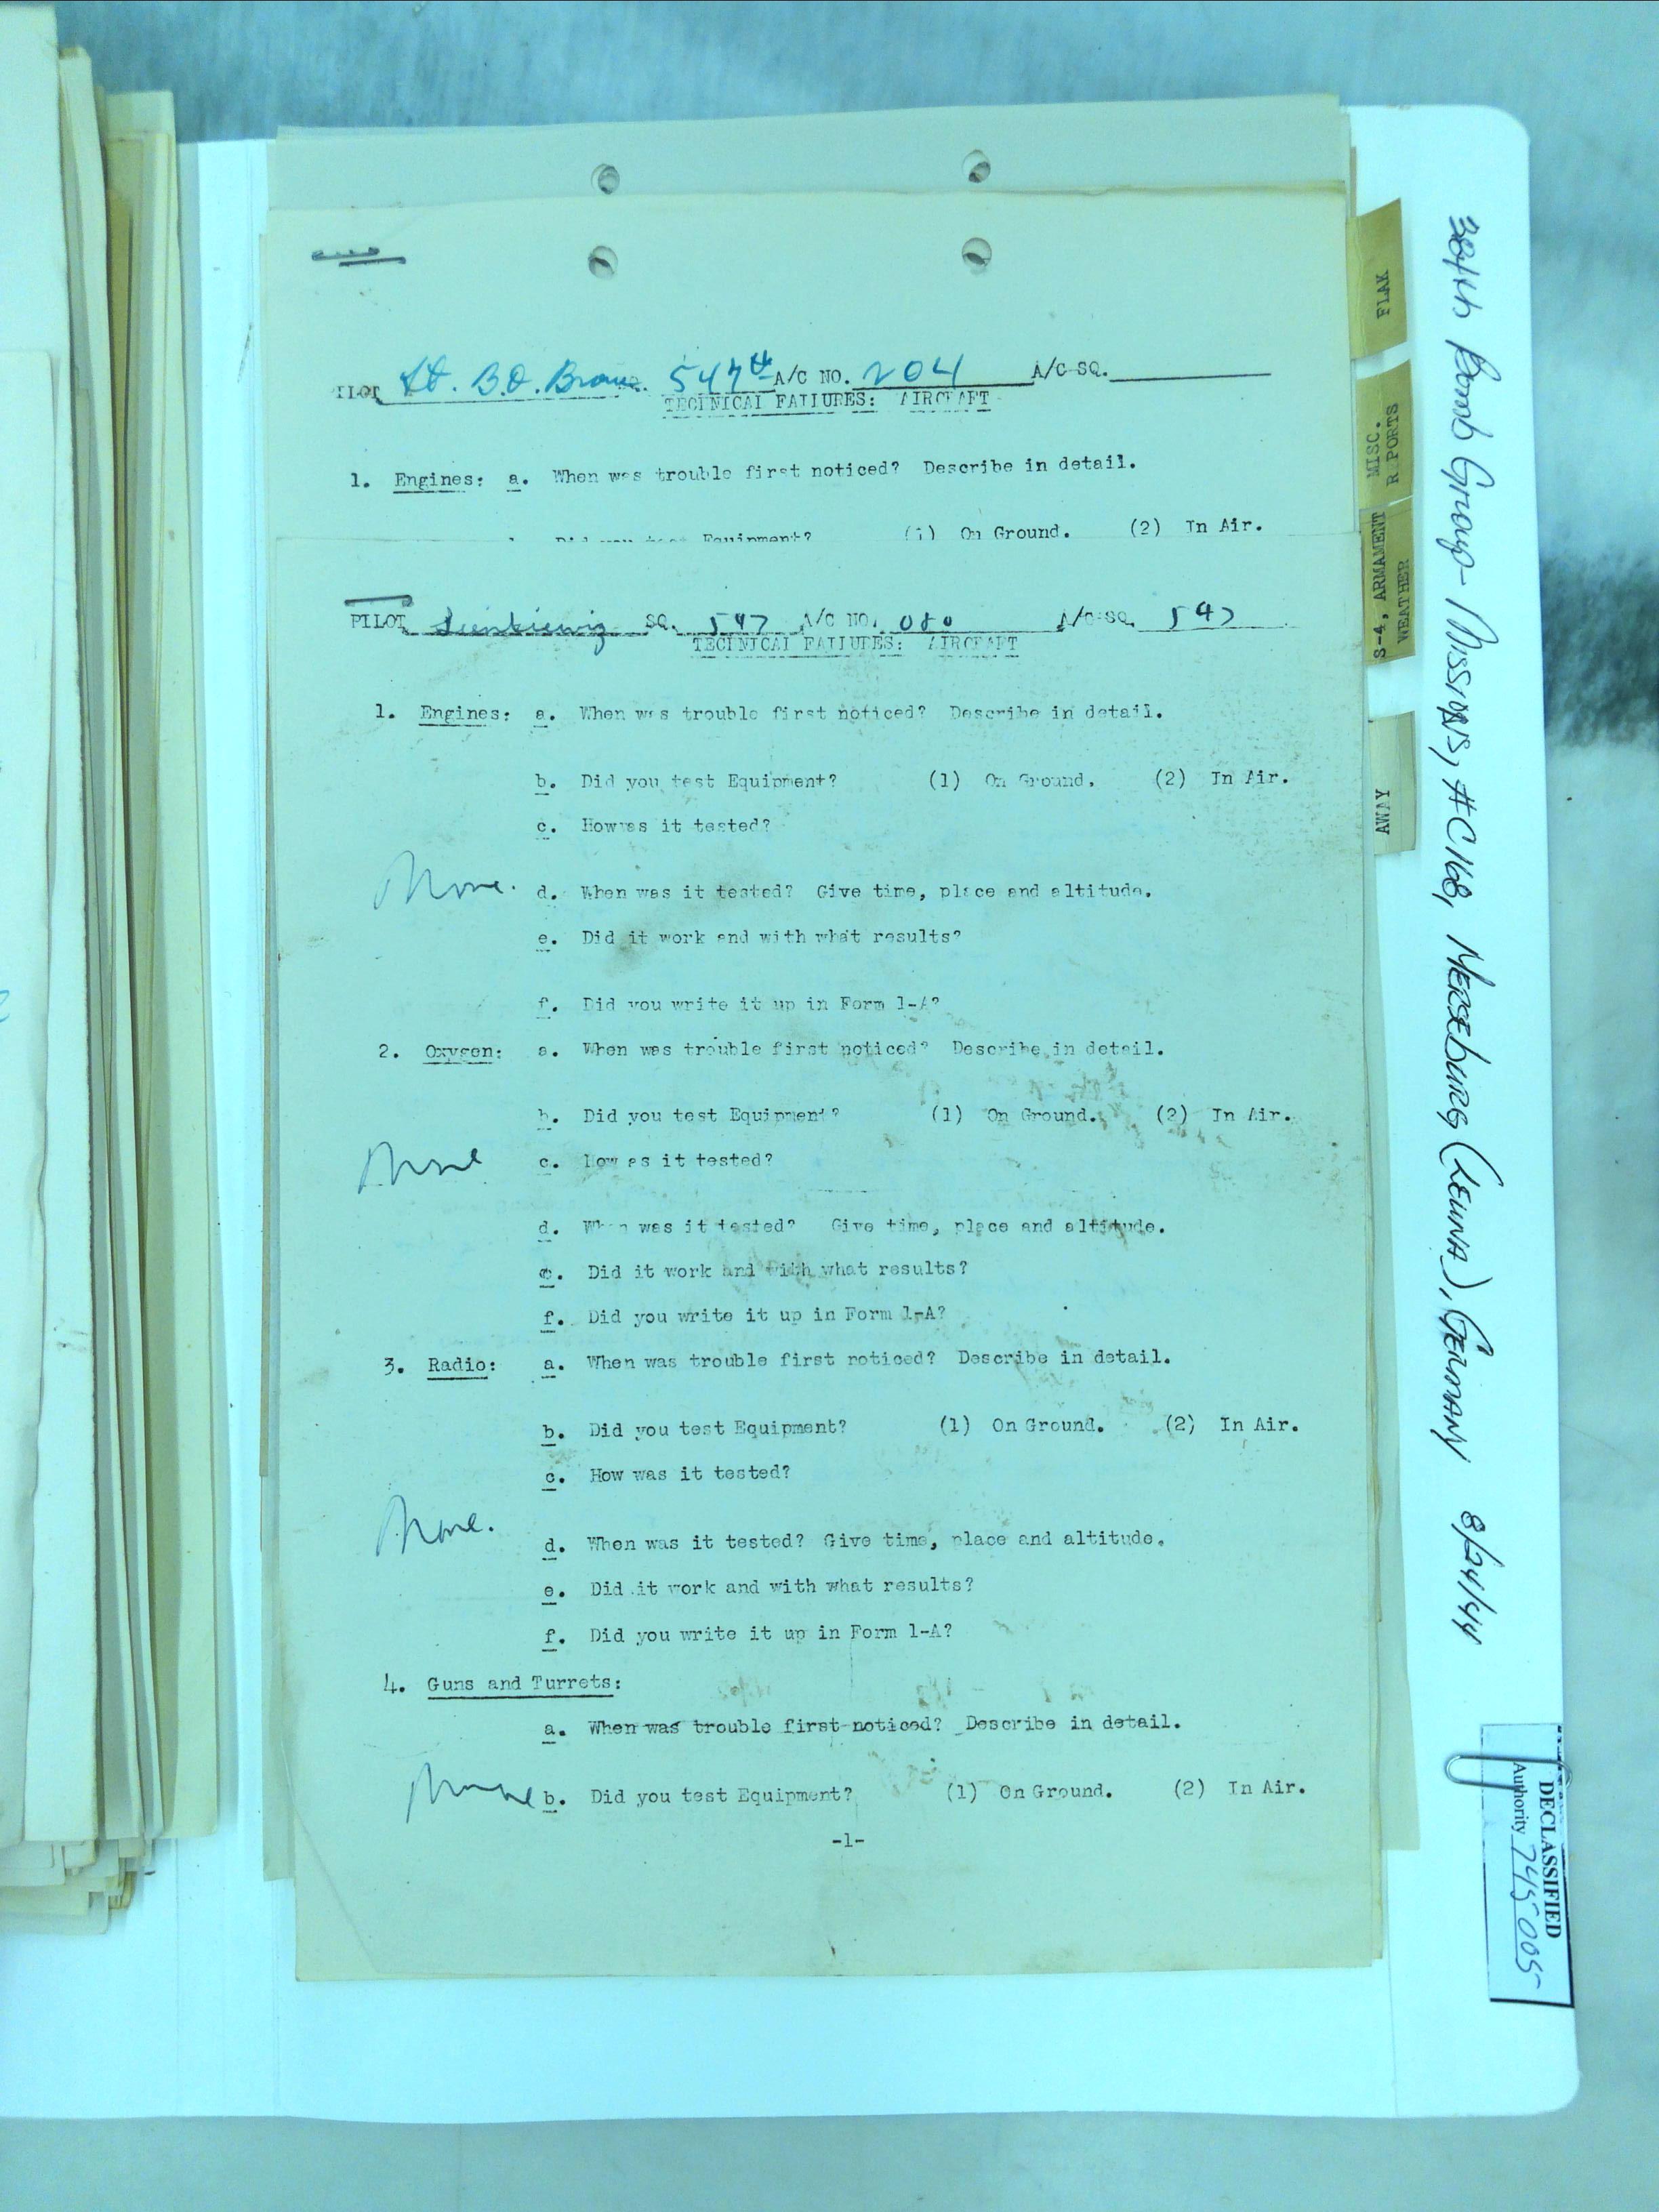 PILOT Lt. B.O. Brown SQ. 547th A/C NO. 204 A/C SQ.
TECHNICAL FAILURES: AIRCRAFT
1. Engines: a. When was trouble first noticed? Describe in detail.
Did you test Equipment? (1) On Ground. (2) In Air.
PILOT Sienkiewiz SQ. 547 A/C NO. 080 A/C SQ. 547
TECHNICAL FAILURES: AIRCRAFT
1. Engines: a. When was trouble first noticed? Describe in detail.
b. Did you test Equipment? (1) On Ground. (2) In Air.
c. How was it tested?
None. d. When was it tested? Give time, place and altitude.
e. Did it work and with what results?
f. Did you write it up in Form 1-A?
2. Oxygen: a. When was trouble first noticed? Describe in detail.
b. Did you test Equipment? (1) On Ground. (2) In Air.
None c. How as it tested?
d. When was it tested? Give time, place and altitude.
e. Did it work and with what results?
f. Did you write it up in Form 1-A?
3. Radio: a. When was trouble first noticed? Describe in detail.
b. Did you test Equipment? (1) On Ground. (2) In Air.
c. How was it tested?
None.
d. When was it tested? Give time, place and altitude.
e. Did it work and with what results?
f. Did you write it up in Form 1-A?
4. Guns and Turrets:
a. When was trouble first noticed? Describe in detail.
None b. Did you test Equipment? (1) On Ground. (2) In Air.
-1-
FLAK
MISC.
REPORTS
S-4, ARMAMENT
WEATHER
AWAY
384th Bomb Group - Missions, #C168, Merseburg (Leuna), Germany 8/24/44
DECLASSIFIED
Authority 745005